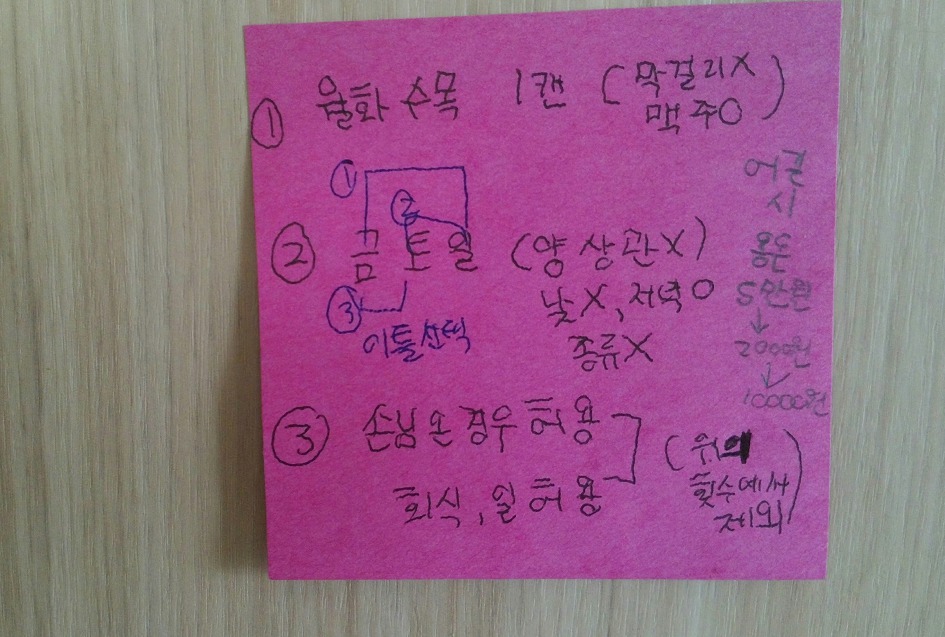 ① 월화수목 1캔 (막걸리X
맥주O)
① ②
② 금토일 (양 상관X)
낮X, 저녁O
③ 이틀선택
종류X
③ 손님 온 경우 허용
회식, 일 허용
(위의
횟수에서
제외)
어길
시
용돈
5만원
↓
200원
↓
10000원